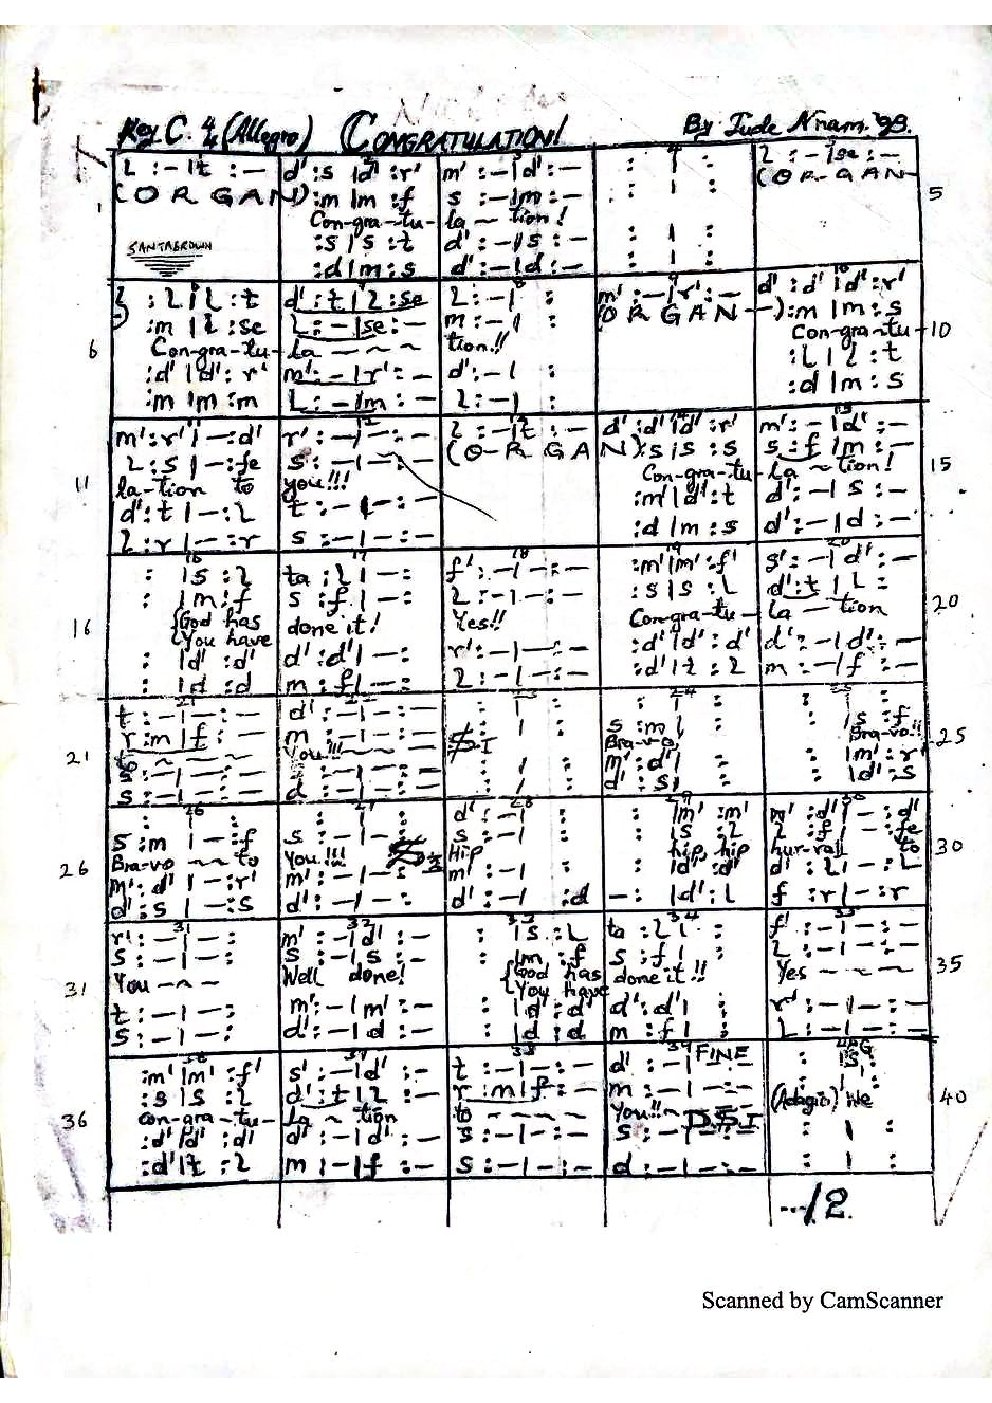 Key C. 4/4 (Allegro) CONGRATULATION! By Jude Nnam. '98.
l : - | t : - d' : s | d' : r' m' : - | d' : - : | : l : - | se : -
(ORGAN) : m | m : f s : - | m : - : | : (ORGAN
1 Con-gra-tu- la ~ tion! 5
SANTABROWN : s | s : t d' : - | s : - : | :
: d | m : s d' : - | d : - : | :
: l | l : t d' : t | l : se l : - | : m' : - | r' : - d' : d' | d' : r'
: m | l : se l : - | se : - m : - | : (ORGAN -) : m | m : s
6 Con-gra-tu- la ~ ~ ~ tion!! Con-gra-tu- 10
: d' | d' : r' m' : - | r' : - d' : - | : : l | l : t
: m | m : m l : - | m : - l : - | : : d | m : s
m' : r' | - : d' r' : - | - : - l : - | t : - d' : d' | d' : r' m' : - | d' : -
l : s | - : fe s : - | - : - (ORGAN) : s | s : s s : f | m : -
11 la-tion to you!!! Con-gra-tu- la ~ tion! 15
d' : t | - : l t : - | - : - : m' | d' : t d' : - | s : -
l : r | - : r s : - | - : - : d | m : s d' : - | d : -
: | s : l ta : l | - : f' : - | - : - : m' | m' : f' s' : - | d' : -
: | m : f s : f | - : l : - | - : - : s | s : l d' : t | l :
16 {God has {You have done it! Yes!! Con-gra-tu- la - tion 20
: | d' : d' d' : d' | - : r' : - | - : - : d' | d' : d' d' : - | d' : -
: | d : d m : f | - : l : - | - : - : d' | t : l m : - | f : -
t : - | - : - d' : - | - : - : | : : | : : | :
r : m | f : - m : - | - : - : | : s : m | : : | s : f
21 to ~ ~ ~ You!!! ~ ~ ~ $1 Bra-vo Bra-vo!! 25
s : - | - : - : - | - : - : | : m' : d' | : : | m' : r'
s : - | - : - d : - | - : - : | : d' : s | : : | d' : s
: | : : | : d' : - | : : | m' : m' m' : d' | - : d'
s : m | - : f s : - | - : s : - | : : | s : l l : f | - : fe
26 Bra-vo ~ ~ to You!!! $ Hip hip, hip hur-rah to 30
m' : d' | - : r' m' : - | - : m' : - | : : | d' : d' d' : l | - : l
d' : s | - : s d' : - | - : d' : - | : d - : | d' : l f : r | - : r
r' : - | - : m' : - | d' : - : | s : l ta : l | : f' : - | - : -
s : - | - : s : - | s : - : | m : f s : f | : l : - | - : -
31 You ~ ~ ~ Well done! {God has {You have done it!! Yes ~ ~ ~ ~ 35
t : - | - : m' : - | m' : - : | d' : d' d' : d' | : r' : - | - : -
s : - | - : d' : - | d : - : | d : d m : f | : l : - | - : -
: m' | m' : f' s' : - | d' : - t : - | - : - d' : - | FINE : | s :
: s | s : l d' : t | l : - r : m | f : - m : - | - : - : | :
36 Con-gra-tu- la ~ tion to ~ ~ ~ ~ You!! ~ D$1 (Adagio) We 40
: d' | d' : d' d' : - | d' : - s : - | - : - s : - | - : - : | :
: d' | t : l m : - | f : - s : - | - : - d : - | - : - : | :
.../2.
Scanned by CamScanner